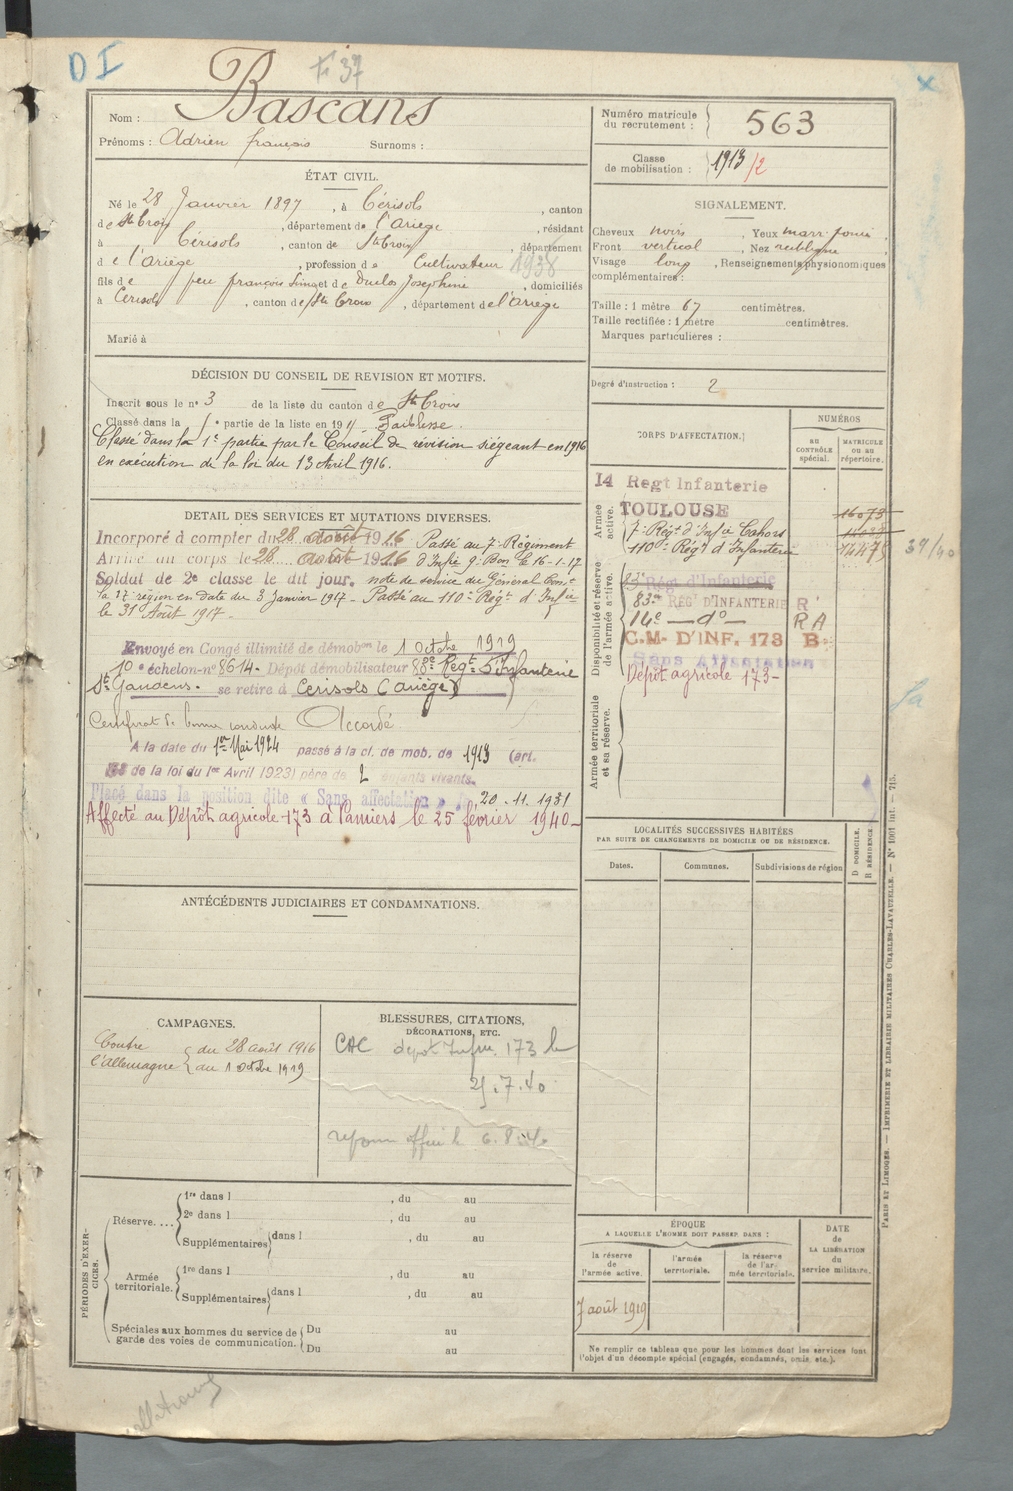 D I
Fi 37
Nom : Bascans
Prénoms : Adrien françois Surnoms :
Numéro matricule du recrutement : 563
Classe de mobilisation : 1913/2
ÉTAT CIVIL.
Né le 28 Janvier 1897, à Cérisols, canton
de Ste Croix, département de l'Ariège, résidant
à Cérisols, canton de Ste Croix, département
de l'Ariège, profession de Cultivateur 1938
fils de feu françois et de Duclos Josephine, domiciliés
à Cerisols, canton de Ste Croix, département de l'Ariège
Marié à
SIGNALEMENT.
Cheveux noirs, Yeux marr. foncé.
Front vertical, Nez rectiligne
Visage long, Renseignements physionomiques
complémentaires :
Taille : 1 mètre 67 centimètres.
Taille rectifiée : 1 mètre centimètres.
Marques particulières :
Degré d'instruction : 2
DÉCISION DU CONSEIL DE REVISION ET MOTIFS.
Inscrit sous le n° 3 de la liste du canton de Ste Croix
Classé dans la partie de la liste en 191 . Faiblesse.
Classé dans la 1e partie par le Conseil de révision siégeant en 1916
en exécution de la loi du 13 Avril 1916.
DETAIL DES SERVICES ET MUTATIONS DIVERSES.
Incorporé à compter du 28 août 1916 Passé au 7e Régiment
Arrivé au corps le 28 août 1916 d'Infie 9e Bon le 16-1-17
Soldat de 2e classe le dit jour. note de service du Général Comt
la 17e région en date du 3 Janvier 1917 - Passé au 110e Régt d'Infie
le 31 Août 1917.
Envoyé en Congé illimité de démobon le 1 Octobre 1919
10e échelon n° 8614. Dépôt démobilisateur 83e Regt d'Infanterie
St Gaudens. se retire à Cerisols (ariège)
Certificat de bonne conduite Accordé
A la date du 1er Mai 1924 passé à la cl. de mob. de 1913 (art.
58 de la loi du 1er Avril 1923) père de 2 enfants vivants.
Placé dans la position dite « Sans affectation » 20.11.1931
Affecté au Dépôt agricole 173 à Pamiers le 25 février 1940 -
CORPS D'AFFECTATION.
NUMÉROS
AU CONTRÔLE SPÉCIAL.
MATRICULE OU AU RÉPERTOIRE.
Armée active.
14 Regt Infanterie
TOULOUSE 16073
7e Régt d'Infie Cahors
110e Régt d'Infanterie 14475 37/40
Disponibilité et réserve de l'armée active.
83e Rég d'Infanterie
83me REGt D'INFANTERIE R
14e — do — RA
C.M. D'INF. 173 B
Sans Affectation
Dépôt agricole 173 -
Armée territoriale et sa réserve.
LOCALITÉS SUCCESSIVES HABITÉES
PAR SUITE DE CHANGEMENTS DE DOMICILE OU DE RÉSIDENCE.
Dates.
Communes.
Subdivisions de région
D DOMICILE.
R RÉSIDENCE.
ANTÉCÉDENTS JUDICIAIRES ET CONDAMNATIONS.
CAMPAGNES.
Contre l'Allemagne { du 28 août 1916
au 1 Octobre 1919
BLESSURES, CITATIONS,
DÉCORATIONS, ETC.
CAC depot Infm. 173 le
25.7.40
6.8.40
PÉRIODES D'EXERCICES.
Réserve....
1re dans l , du au
2e dans l , du au
Supplémentaires dans l , du au
Armée territoriale.
1re dans l , du au
Supplémentaires dans l , du au
Spéciales aux hommes du service de garde des voies de communication.
Du au
Du au
ÉPOQUE
A LAQUELLE L'HOMME DOIT PASSER DANS :
la réserve de l'armée active.
l'armée territoriale.
la réserve de l'armée territoriale.
DATE de LA LIBÉRATION du service militaire.
7 août 1919
Ne remplir ce tableau que pour les hommes dont les services font
l'objet d'un décompte spécial (engagés, condamnés, omis, etc.).
PARIS ET LIMOGES. — IMPRIMERIE ET LIBRAIRIE MILITAIRES CHARLES-LAVAUZELLE. — N° 1001 int. — 715.